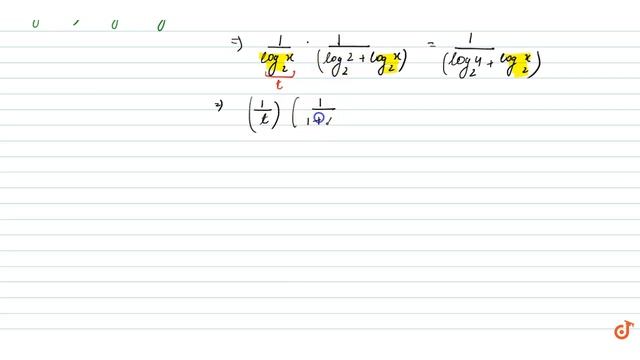 ⇒ 1/(log₂x) · 1/(log₂2 + log₂x) = 1/(log₂4 + log₂x)
t
⇒ (1/t) (1/(1+